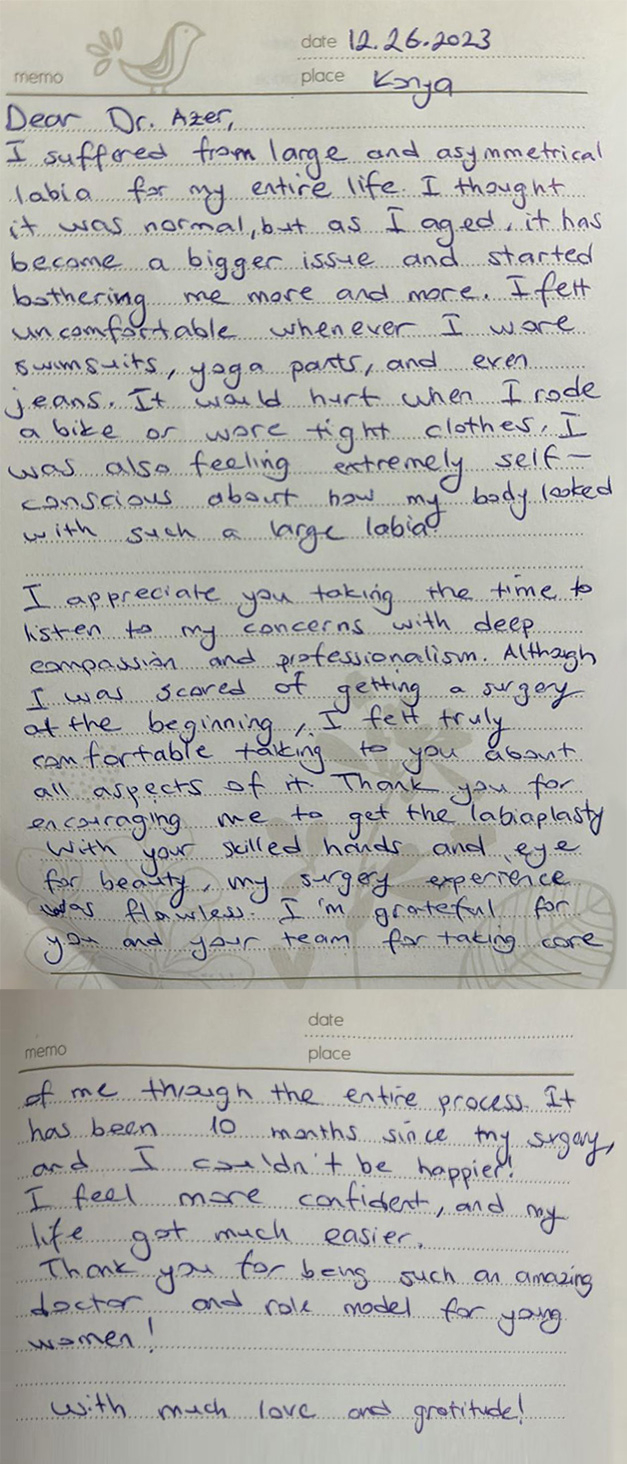 date 12.26.2023
memo place Konya
Dear Dr. Azer,
I suffered from large and asymmetrical
labia for my entire life. I thought
it was normal, but as I aged, it has
become a bigger issue and started
bothering me more and more. I felt
uncomfortable whenever I wore
swimsuits, yoga pants, and even
jeans. It would hurt when I rode
a bike or wore tight clothes. I
was also feeling extremely self-
conscious about how my body looked
with such a large labia.
I appreciate you taking the time to
listen to my concerns with deep
compassion and professionalism. Although
I was scared of getting a surgery
at the beginning, I felt truly
comfortable talking to you about
all aspects of it. Thank you for
encouraging me to get the labiaplasty
With your skilled hands and eye
for beauty, my surgery experience
was flawless. I'm grateful for
you and your team for taking care
date
memo place
of me through the entire process. It
has been 10 months since my surgery,
and I couldn't be happier!
I feel more confident, and my
life got much easier.
Thank you for being such an amazing
doctor and role model for young
women!
With much love and gratitude!